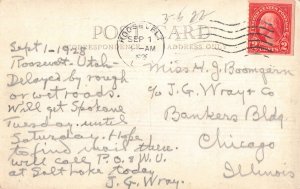 3-6 22
POST CARD
CORRESPONDENCE
ADDRESS ONLY
ROOSEVELT
SEP 1
AM
Sept 1-1925
Roosevelt-Utah-
Delayed by rough
or wet roads.
Will get Spokane
Tuesday until
Saturday. Hope
to find mail there
will call P.O. & W.U.
at Salt Lake today
J.G. Wray.
Miss H. J. Boomgarn
c/o J.G. Wray & Co
Bankers Bldg.
Chicago
Illinois